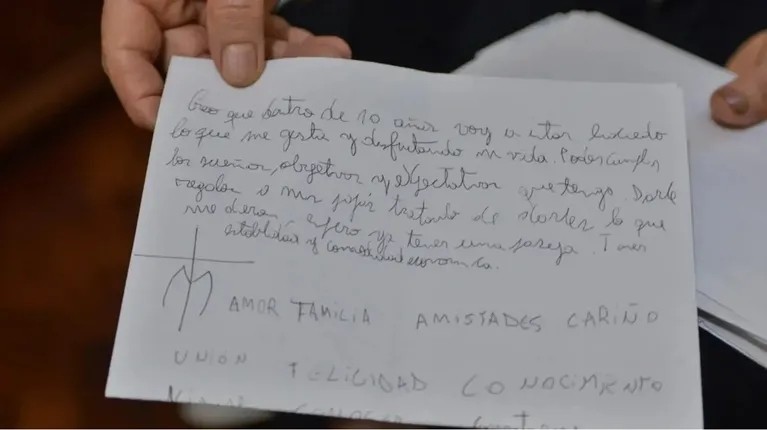 Creo que dentro de 10 años voy a estar haciendo
lo que me gusta y disfrutando mi vida. Poder cumplir
los sueños, objetivos y expectativas que tengo Darle
regalos a mis papás tratando de darles lo que
me dieron, espero ya tener una pareja. Tener
estabilidad y comodidad economica.
AMOR FAMILIA AMISTADES CARIÑO
UNIÓN FELICIDAD CONOCIMIENTO